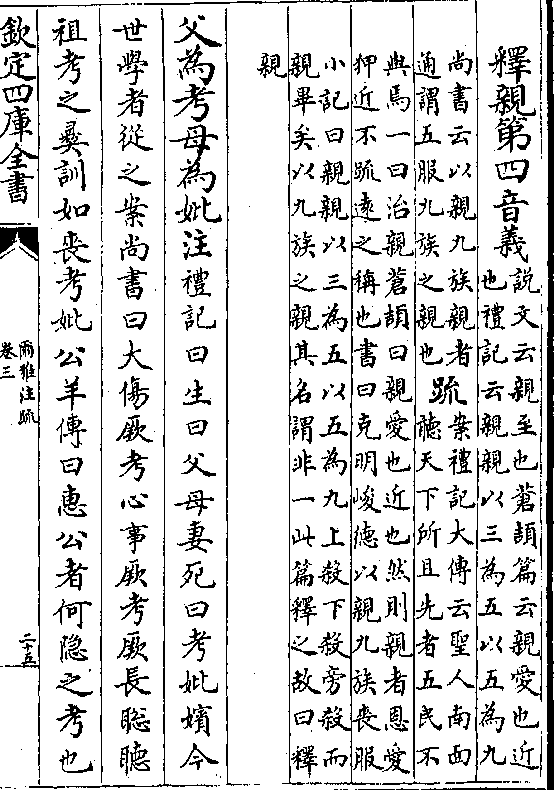 釋親第四音義
說文云親至也蒼頡篇云親愛也近
也禮記云親親以三為五以五為九
尚書云以親九族親者
通謂五服九族之親也
疏
案禮記大傳云聖人南面
聽天下所且先者五民不
與焉一曰治親蒼頡曰親愛也近也然則親者恩愛
狎近不疏遠之稱也書曰克明峻德以親九族喪服
小記曰親親以三為五以五為九上殺下殺旁殺而
親畢矣以九族之親其名謂非一此篇釋之故曰釋
親
父為考母為妣注禮記曰生曰父母妻死曰考妣嬪今
世學者從之案尚書曰大傷厥考心事厥考厥長聰聽
祖考之彝訓如喪考妣公羊傳曰惠公者何隱之考也
欽定四庫全書
爾雅注疏
卷三
二十五